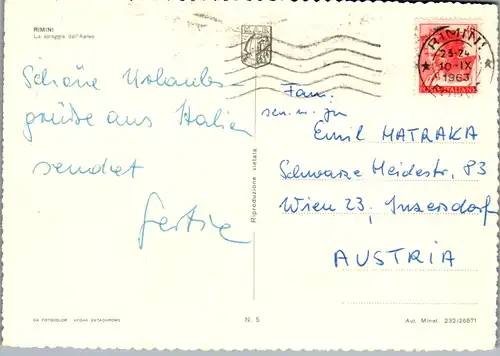 RIMINI
La spiaggia dall'Aereo
Schöne Urlaubs-
grüße aus Italien
sendet
RIMINI
23-24
10-IX
1963
POSTE ITALIANE
Fam.
sen. u. jun
Emil MATRAKA
Schwarze Heidestr. 83
Wien 23, Inzersdorf
AUSTRIA
Riproduzione vietata
DA FOTOCOLOR KODAK EKTACHROME
N. 5
Aut. Minist. 232/26571